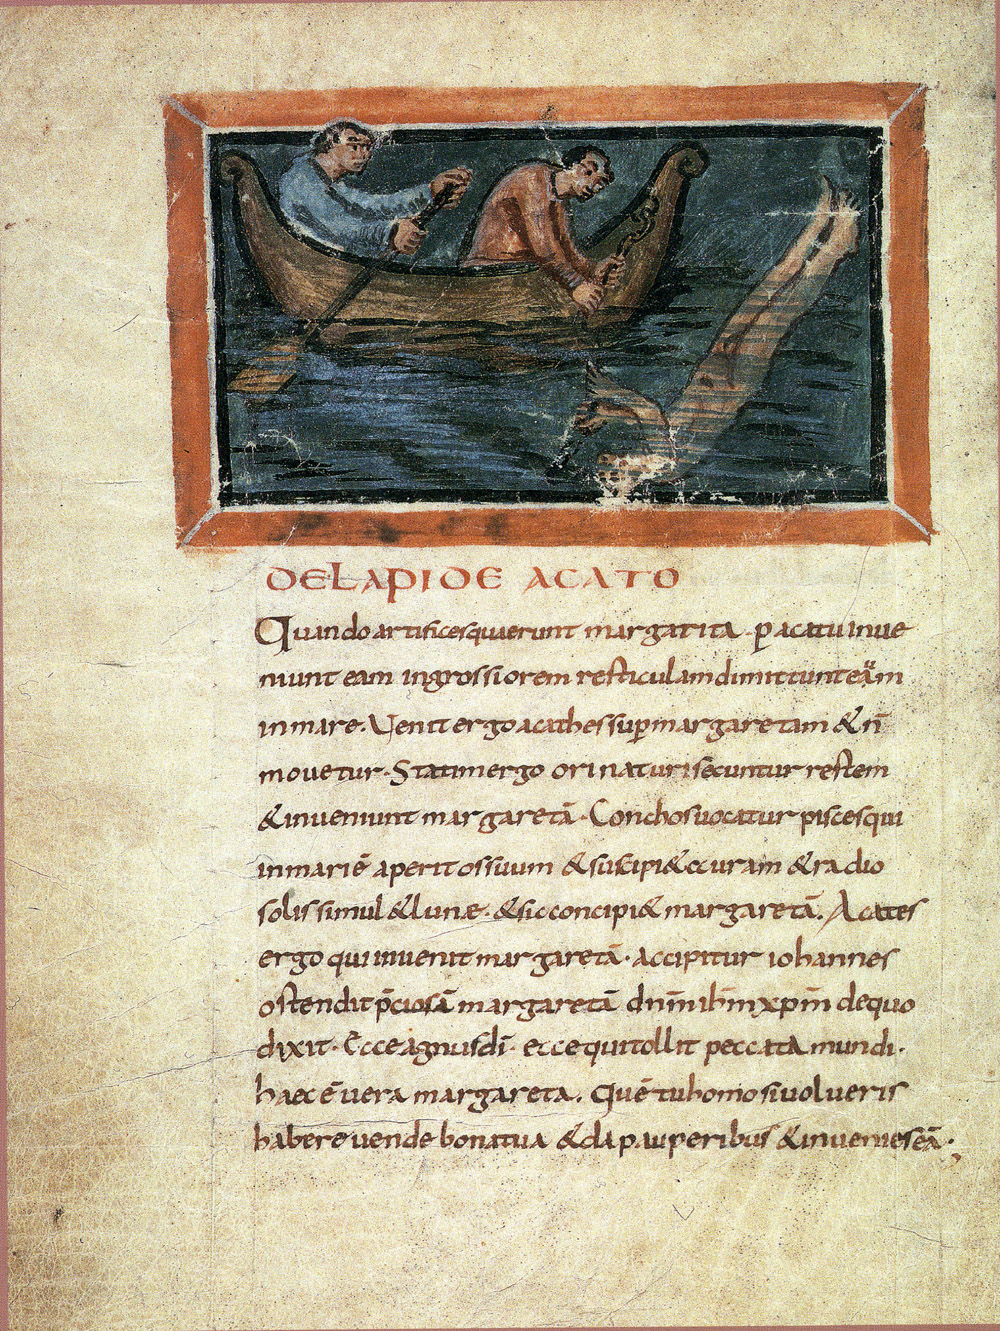 DE LAPIDE ACATO
Quando artifices quaerunt margarita. p acatu inue
niunt eam in grossiorem resticulam dimittunt eam
in mare. Venit ergo acathes sup margaretam & n̄
mouetur. Statim ergo orinaturi secuntur restem
& inueniunt margaretā. Conchos uocatur pisces qui
in mari ē aperit os suum & suscipi& ccuram & radio
solis simul & lunae. & sic concipi& margaretā. Acates
ergo qui inuenit margaretā. accipitur iohannes
ostendit p̄ciosā margaretā dn̄m ih̄m xp̄m de quo
dixit. Ecce agnus dī. ecce qui tollit peccata mundi.
haec ē uera margareta. Quē tu homo si uolueris
habere uende bona tua & da pauperibus & inuenies eā.